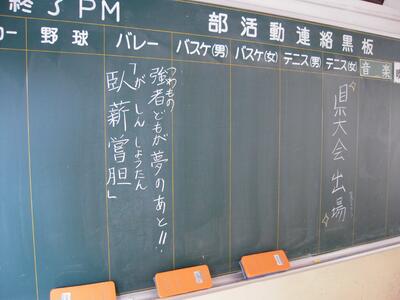 終了PM
部活動連絡黒板
カー
野球
バレー
バスケ(男)
バスケ(女)
テニス(男)
テニス(女)
音楽
強者どもが夢のあと!!
つわもの
「臥薪嘗胆」
がしんしょうたん
県大会出場